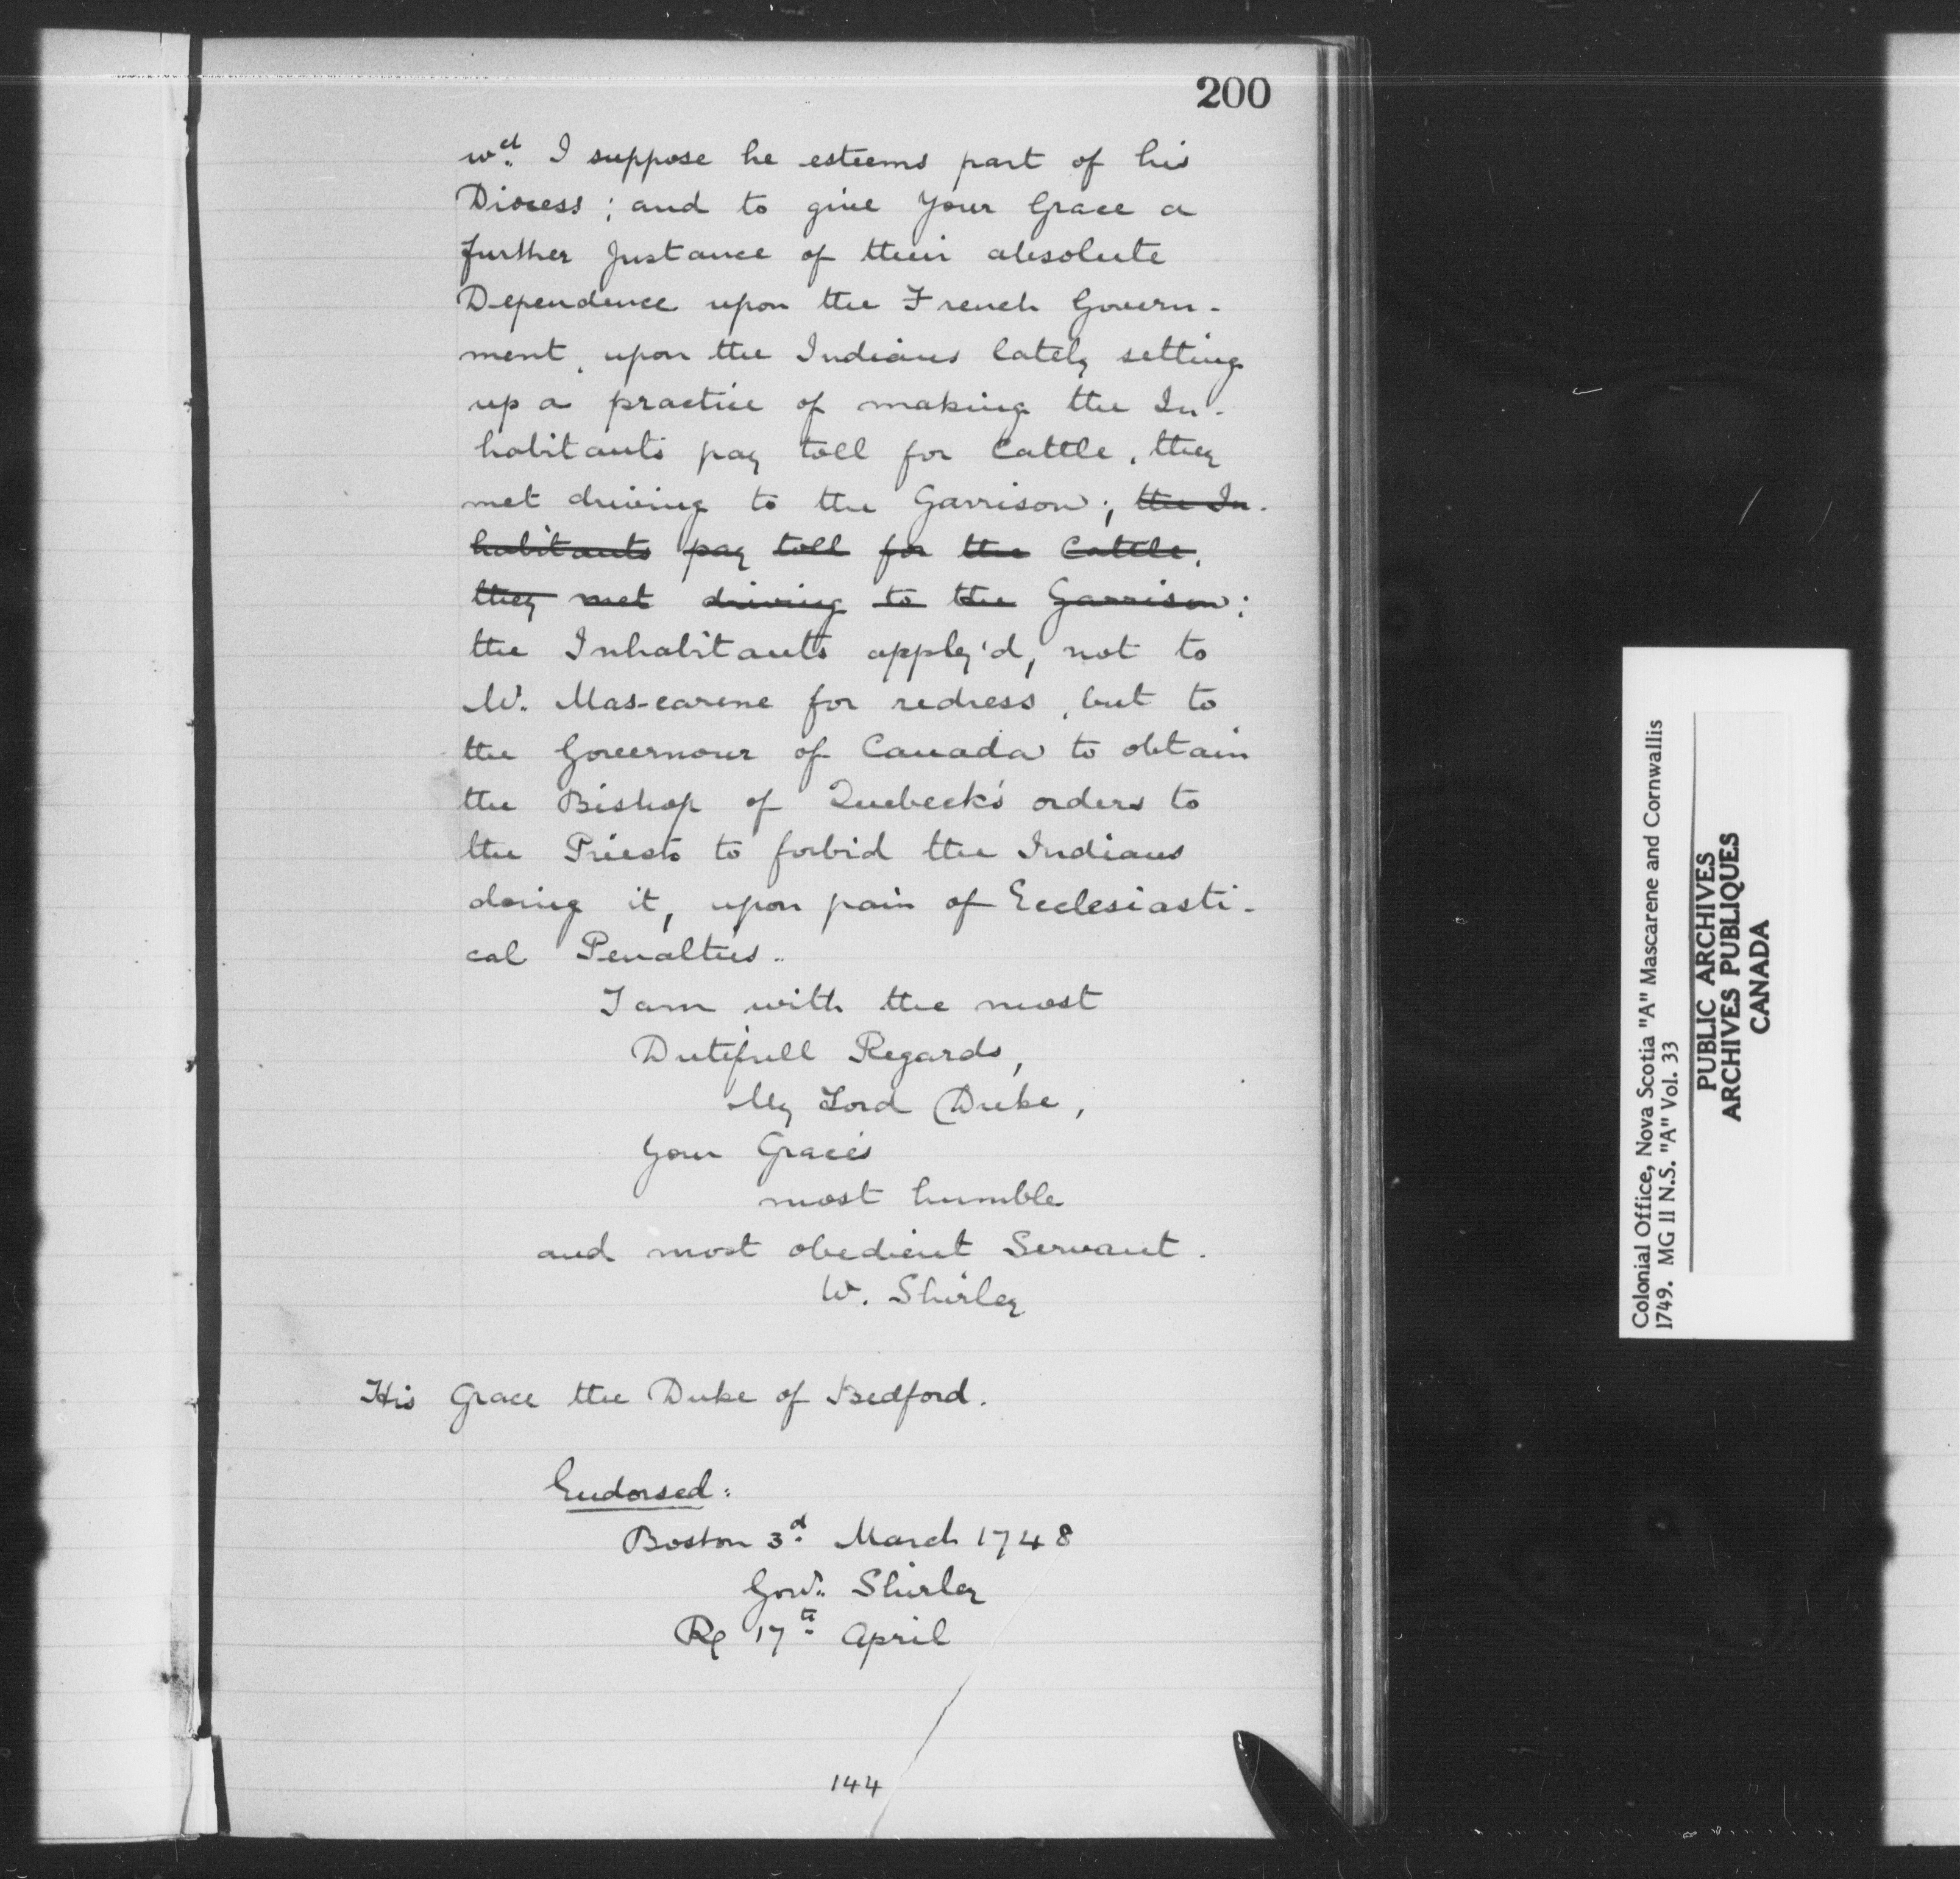 200
wd. I suppose he esteems part of his
Diocess; and to give Your Grace a
further Instance of their absolute
Dependence upon the French Govern-
ment, upon the Indians lately setting
up a practice of making the In-
habitants pay toll for Cattle, they
met driving to the Garrison; the In-
habitants pay toll for the Cattle,
they met driving to the Garrison:
the Inhabitants apply'd, not to
Mr. Mas-carene for redress, but to
the Governour of Canada to obtain
the Bishop of Quebeck's orders to
the Priests to forbid the Indians
doing it, upon pain of Ecclesiasti-
cal Penalties.
I am with the most
Dutifull Regards,
My Lord Duke,
Your Grace's
most humble
and most obedient Servant.
W. Shirley
His Grace the Duke of Bedford.
Endorsed:
Boston 3d. March 1748
Govr. Shirley
Re 17th. April
144
Colonial Office, Nova Scotia "A" Mascarene and Cornwallis
1749. MG II N.S. "A" Vol. 33
PUBLIC ARCHIVES
ARCHIVES PUBLIQUES
CANADA